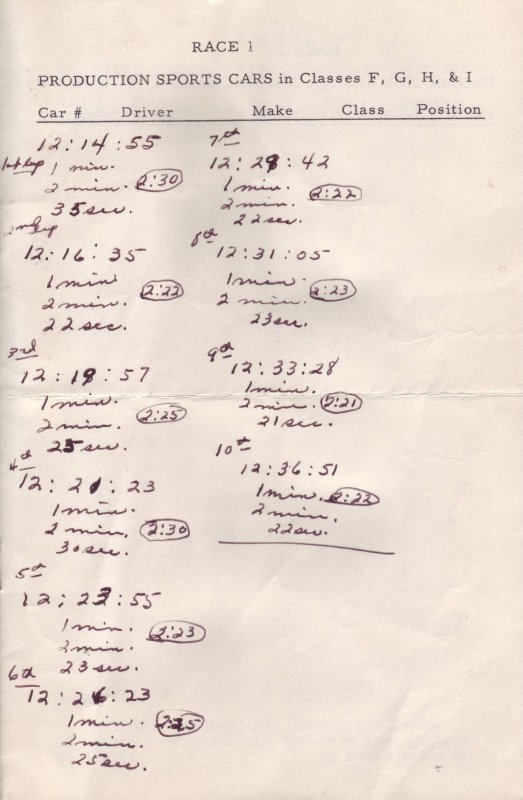 RACE 1
PRODUCTION SPORTS CARS in Classes F, G, H, & I
Car # Driver Make Class Position
12:14:55
1st lap 1 min.
2 min. 2:30
35 sec.
2nd lap
12:16:35
1 min
2 min. 2:22
22 sec.
3rd
12:19:57
1 min.
2 min. 2:25
25 sec.
4th
12:21:23
1 min.
2 min. 2:30
30 sec.
5th
12:23:55
1 min. 2:23
2 min.
23 sec.
6th
12:26:23
1 min. 2:25
2 min.
25 sec.
7th
12:28:42
1 min. 2:22
2 min.
22 sec.
8th
12:31:05
1 min. 2:23
2 min.
23 sec.
9th
12:33:28
1 min.
2 min. 2:21
21 sec.
10th
12:36:51
1 min. 2:22
2 min.
22 sec.